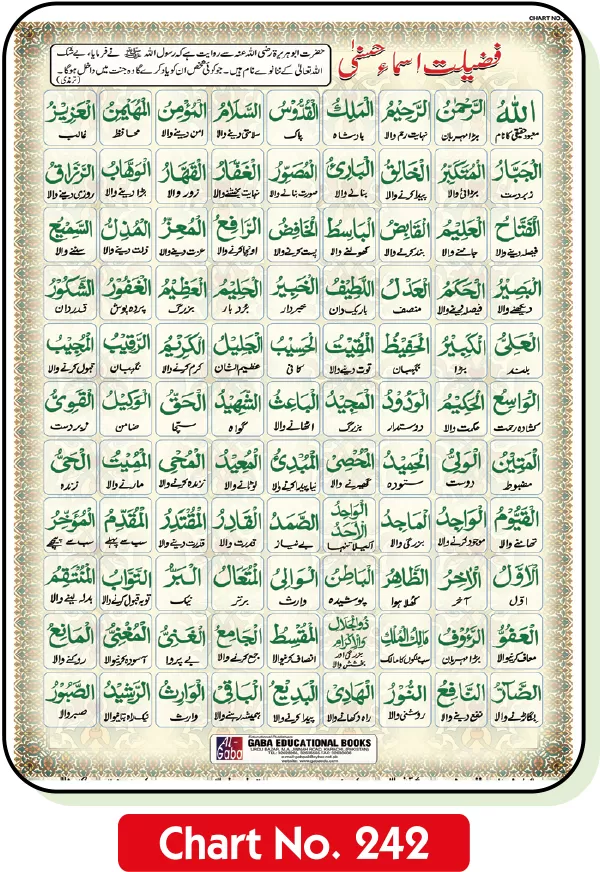 CHART NO.
فضیلت اسماء حسنیٰ
حضرت ابو ہریرۃ رضی اللہ عنہ سے روایت ہے کہ رسول اللہ ﷺ نے فرمایا، بے شک
اللہ تعالیٰ کے ننانوے نام ہیں۔ جو کوئی شخص ان کو یاد کرے گا وہ جنت میں داخل ہوگا۔ (ترمذی)
اَللّٰهُ الرَّحْمٰنُ الرَّحِيْمُ الْمَلِكُ الْقُدُّوْسُ السَّلَامُ الْمُؤْمِنُ الْمُهَيْمِنُ الْعَزِيْزُ
معبود حقیقی کا نام بڑا مہربان نہایت رحم والا بادشاہ پاک سلامتی دینے والا امن دینے والا محافظ غالب
الْجَبَّارُ الْمُتَكَبِّرُ الْخَالِقُ الْبَارِئُ الْمُصَوِّرُ الْغَفَّارُ الْقَهَّارُ الْوَهَّابُ الرَّزَّاقُ
زبردست بڑائی والا پیدا کرنے والا بنانے والا صورت بنانے والا نہایت بخشنے والا زور والا بڑا دینے والا روزی دینے والا
الْفَتَّاحُ الْعَلِيْمُ الْقَابِضُ الْبَاسِطُ الْخَافِضُ الرَّافِعُ الْمُعِزُّ الْمُذِلُّ السَّمِيْعُ
فیصلہ دینے والا جاننے والا بند کرنے والا کھولنے والا پست کرنے والا اونچا کرنے والا عزت دینے والا ذلت دینے والا سننے والا
الْبَصِيْرُ الْحَكَمُ الْعَدْلُ اللَّطِيْفُ الْخَبِيْرُ الْحَلِيْمُ الْعَظِيْمُ الْغَفُوْرُ الشَّكُوْرُ
دیکھنے والا فیصلہ دینے والا منصف باریک دان خبردار بردبار بزرگ پردہ پوش قدردان
الْعَلِىُّ الْكَبِيْرُ الْحَفِيْظُ الْمُقِيْتُ الْحَسِيْبُ الْجَلِيْلُ الْكَرِيْمُ الرَّقِيْبُ الْمُجِيْبُ
بلند بڑا نگہبان قوت دینے والا کافی عظیم الشان کرم کرنے والا نگہبان قبول کرنے والا
الْوَاسِعُ الْحَكِيْمُ الْوَدُوْدُ الْمَجِيْدُ الْبَاعِثُ الشَّهِيْدُ الْحَقُّ الْوَكِيْلُ الْقَوِىُّ
کشادہ رحمت حکمت والا دوستدار بزرگ اٹھانے والا گواہ سچا ضامن زبردست
الْمَتِيْنُ الْوَلِىُّ الْحَمِيْدُ الْمُحْصِى الْمُبْدِئُ الْمُعِيْدُ الْمُحْيِى الْمُمِيْتُ الْحَىُّ
مضبوط دوست ستودہ گھیرنے والا نیا پیدا کرنے والا لوٹانے والا زندہ کرنے والا مارنے والا زندہ
الْقَيُّوْمُ الْوَاجِدُ الْمَاجِدُ الْوَاحِدُ الْاَحَدُ الصَّمَدُ الْقَادِرُ الْمُقْتَدِرُ الْمُقَدِّمُ الْمُؤَخِّرُ
تھامنے والا موجود کرنے والا بزرگی والا اکیلا تنہا بے نیاز قدرت والا قدرت دینے والا سب سے پہلے سب سے پیچھے
الْاَوَّلُ الْاٰخِرُ الظَّاهِرُ الْبَاطِنُ الْوَالِى الْمُتَعَالُ الْبَرُّ التَّوَّابُ الْمُنْتَقِمُ
اوّل آخر کھلا ہوا پوشیدہ وارث برتر نیک توبہ قبول کرنے والا بدلہ لینے والا
الْعَفُوُّ الرَّءُوْفُ مَالِكُ الْمُلْكِ ذُوالْجَلَالِ وَالْاِكْرَامِ الْمُقْسِطُ الْجَامِعُ الْغَنِىُّ الْمُغْنِىُّ الْمَانِعُ
معاف کرنیوالا بڑا مہربان سب ملکوں کا مالک بزرگی اور بخشش والا انصاف کرنیوالا جمع کرنے والا بے پروا آسودہ کرنیوالا روکنے والا
الضَّآرُّ النَّافِعُ النُّوْرُ الْهَادِىُ الْبَدِيْعُ الْبَاقِى الْوَارِثُ الرَّشِيْدُ الصَّبُوْرُ
بگاڑنے والا نفع دینے والا روشنی والا راہ دکھانے والا پیدا کرنے والا ہمیشہ رہنے والا وارث نیک راہ بتانیوالا صبر والا
AL-Gaba
GABA EDUCATIONAL BOOKS
URDU BAZAR, M.A. JINNAH ROAD, KARACHI (PAKISTAN)
Chart No. 242